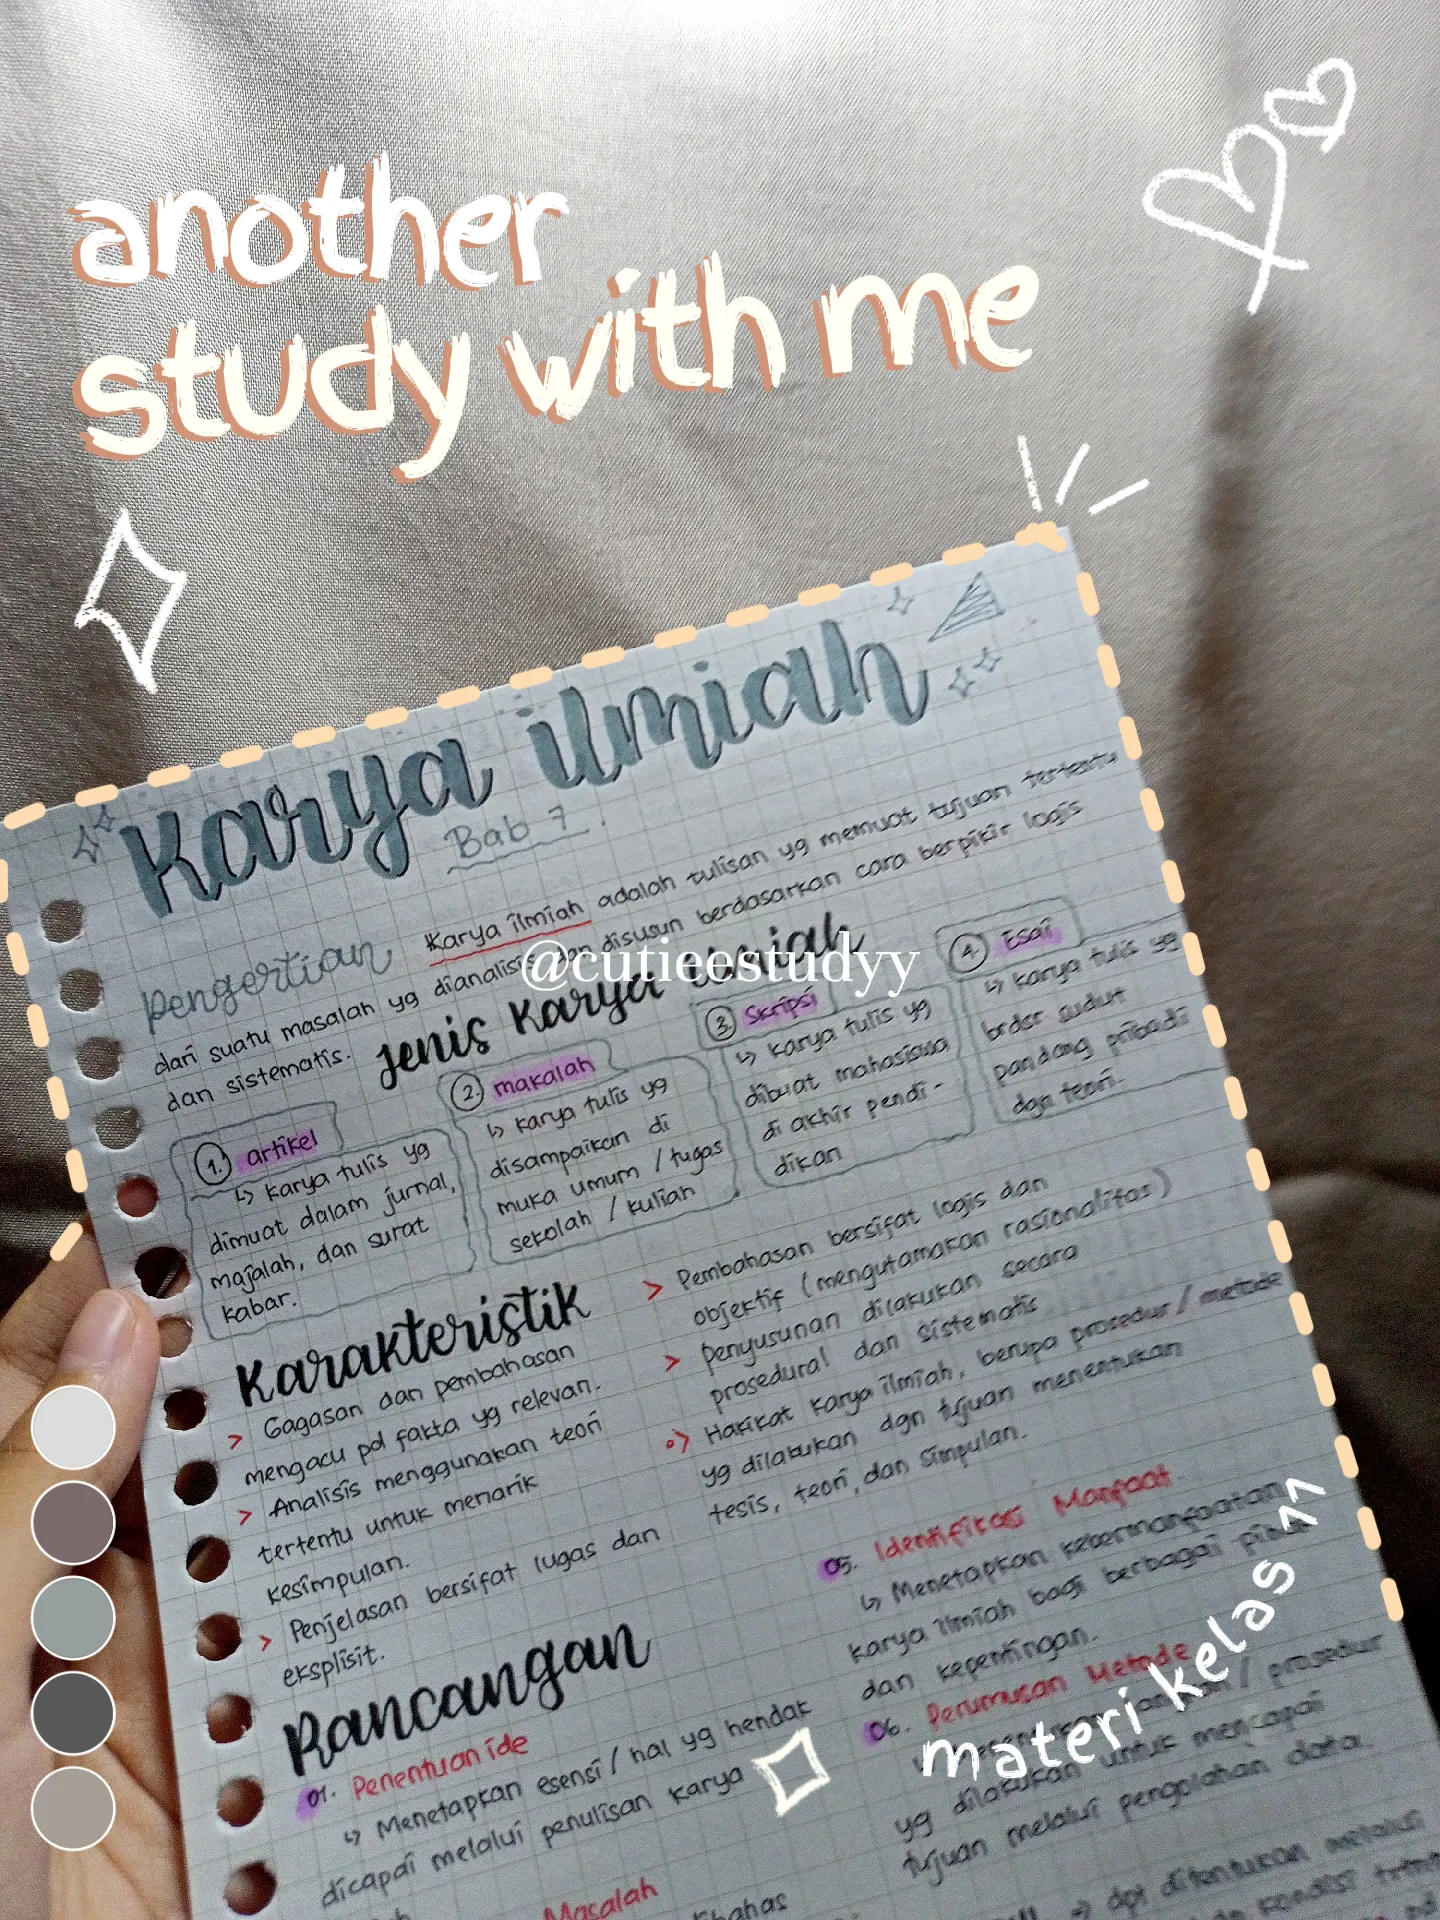 another
study with me
Karya ilmiah
Bab 7.
pengertian
Karya ilmiah adalah tulisan yg memuat tujuan tertentu
dari suatu masalah yg dianalisis dan disusun berdasarkan cara berpikir logis
dan sistematis.
@cutieestudyy
Jenis Karya Ilmiah
1. artikel
↳ karya tulis yg
dimuat dalam jurnal,
majalah, dan surat
kabar.
2. makalah
↳ karya tulis yg
disampaikan di
muka umum / tugas
sekolah / kuliah
3. Skripsi
↳ karya tulis yg
dibuat mahasiswa
di akhir pendi-
dikan
4. Esai
↳ karya tulis yg
sudut
pandang pribadi
dgn teori.
Karakteristik
> Gagasan dan pembahasan
mengacu pd fakta yg relevan.
> Analisis menggunakan teori
tertentu untuk menarik
kesimpulan.
> Penjelasan bersifat lugas dan
eksplisit.
> Pembahasan bersifat logis dan
objektif (mengutamakan rasionalitas)
> penyusunan dilakukan secara
prosedural dan sistematis
> Hakikat karya ilmiah, berupa prosedur / metode
yg dilakukan dgn tujuan menentukan
tesis, teori, dan simpulan.
Rancangan
01. Penentuan ide
↳ Menetapkan esensi / hal yg hendak
dicapai melalui penulisan karya
Masalah
05. Identifikasi Manfaat
↳ Menetapkan kebermanfaatan
karya ilmiah bagi berbagai pihak
dan kepentingan.
06. Perumusan Metode
/ prosedur
yg dilakukan untuk mencapai
tujuan melalui pengolahan data.
dpt ditentukan melalui
kondisi
materi kelas 11